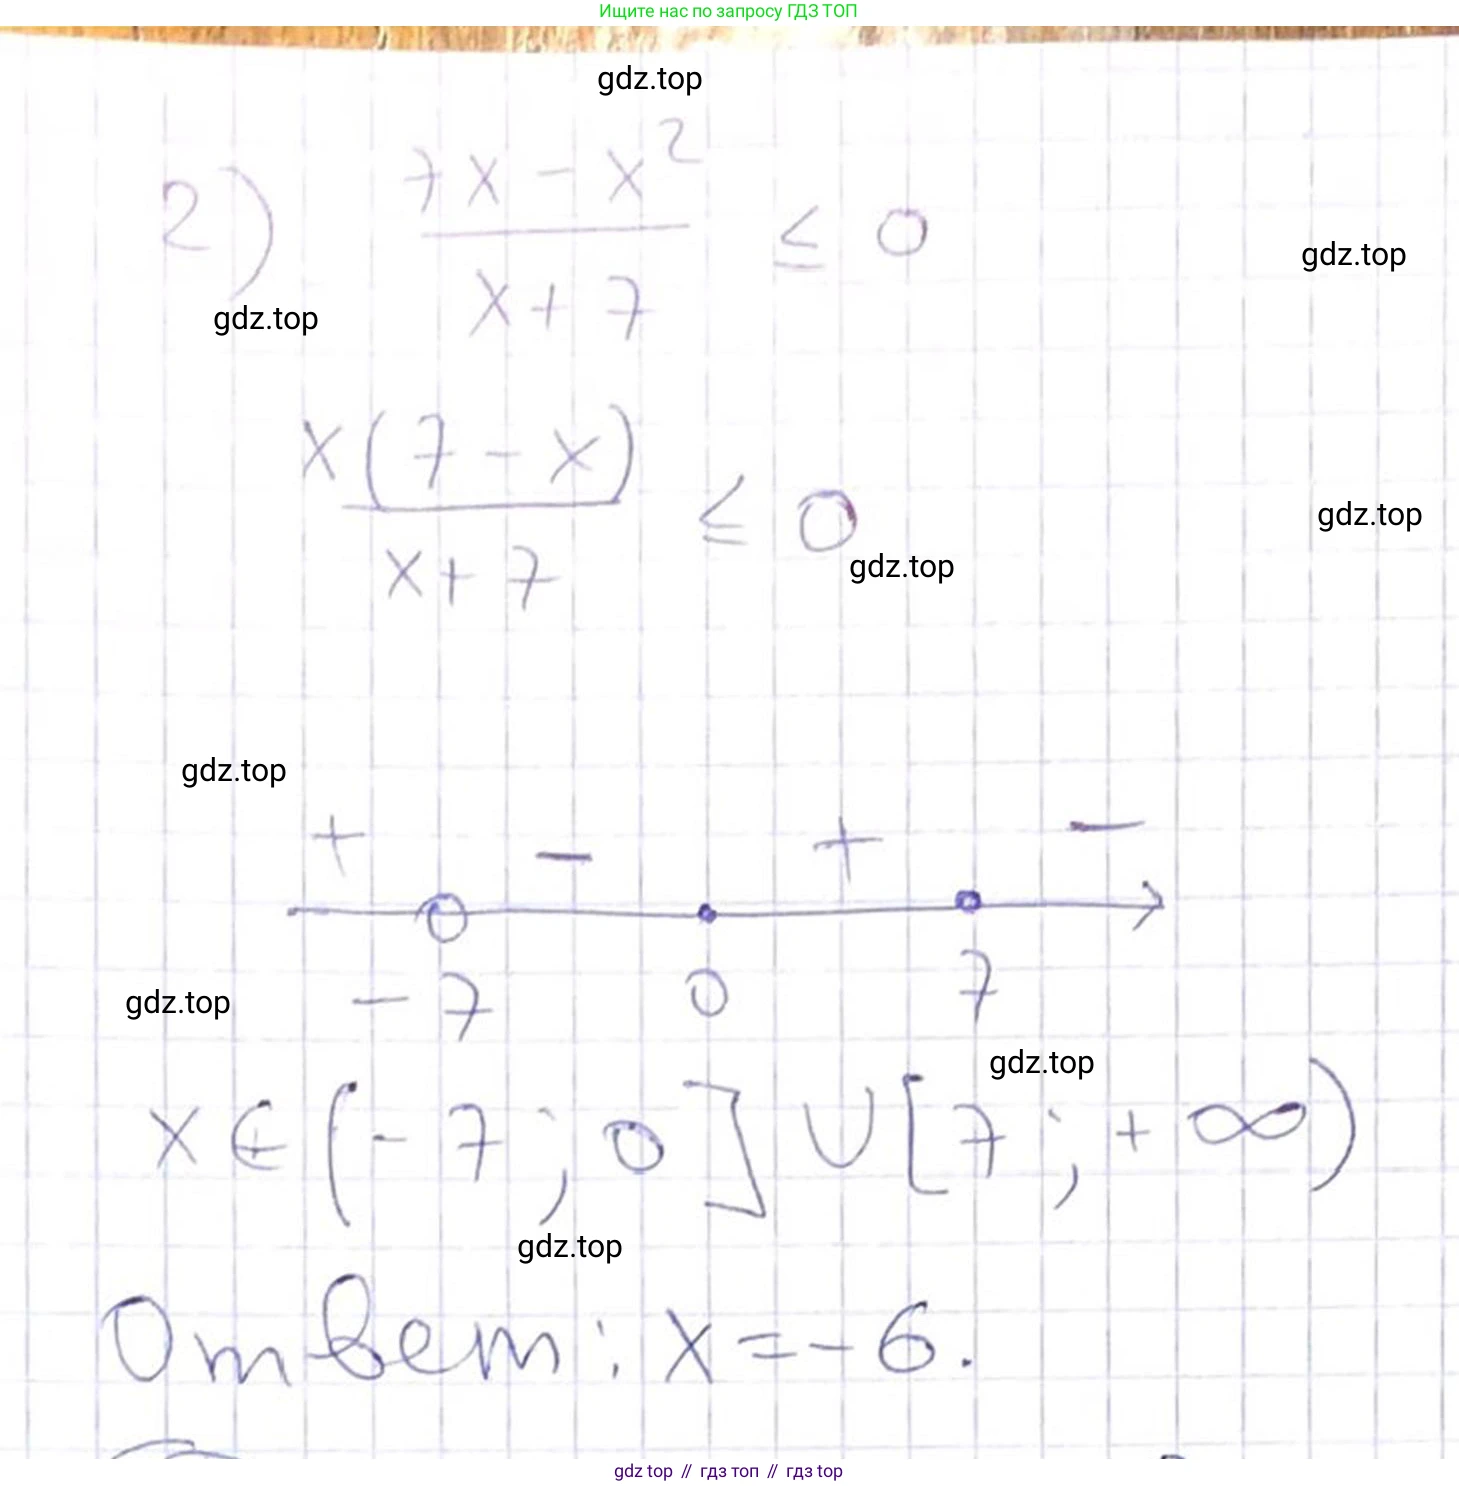 Ищите нас по запросу ГДЗ ТОП
gdz.top
2) (7x - x²)/(x + 7) ≤ 0
gdz.top
gdz.top
x(7 - x)/(x + 7) ≤ 0
gdz.top
gdz.top
gdz.top
+ - + -
-7 0 7
gdz.top
gdz.top
x ∈ (-7; 0] ∪ [7; +∞)
gdz.top
Ответ: x = -6.
gdz top // гдз топ // гдз top